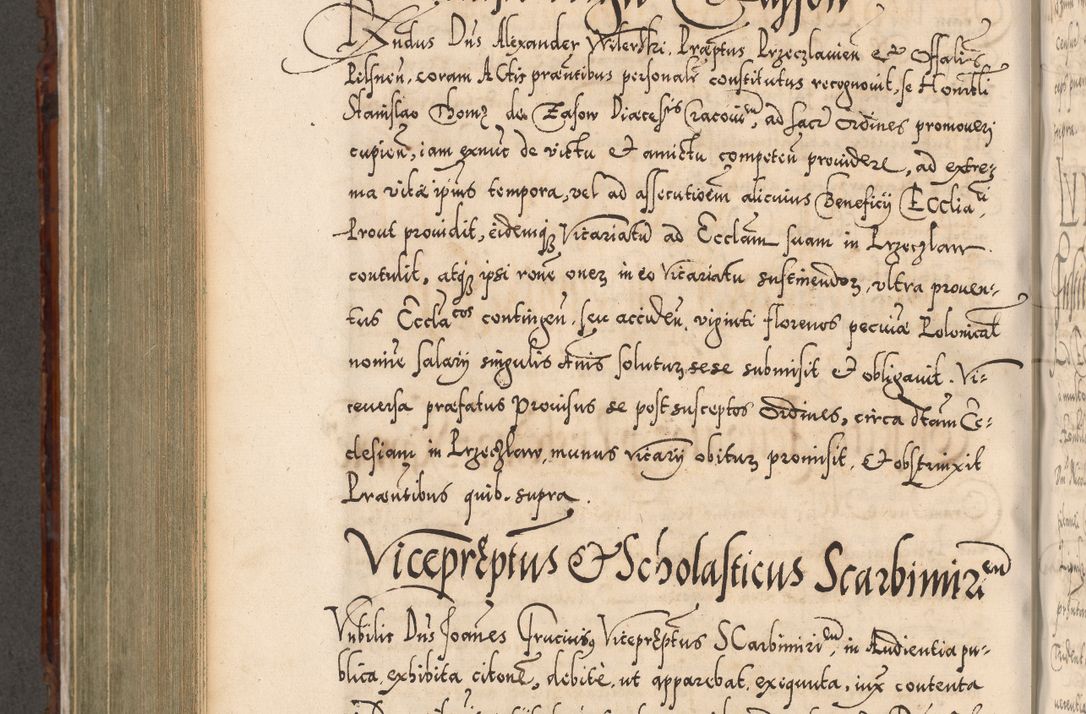 Rndus Dns Alexander Wilerski, Præptus Przeczlauien et Offalis
Pilsnen, coram Actis præntibus personalr constitutus recognouit, se Honesti
Stanislao Thomæ de Zasow Diæcesis Cracouien, ad sacr Ordines promoueri
cupien, iam exnuc de victu et amictu competen prouidere, ad extre=
ma vitæ ipius tempora, vel ad assecutioem alicuius Beneficij Ecclia
Prout prouidit, eidemq Vicariatu ad Ecclam suam in Przeczlaw
contulit, atq ipsi rone onez in eo Vicariatu sustinendoz, vltra prouen=
tus Ecclacos contingen, seu acciden, viginti florenos pecuiæ Polonical
nomie salarij singulis Anis soluturz sese submisit et obligauit. Vi=
ceuersa præfatus Prouisus se post susceptos Ordines, circa dtam Ec=
clesiam in Przeczlaw, munus Vicarij obiturz promisit, et obstrinxit
Præntibus quib. supra.
Vicepræptus et Scholasticus Scarbimirien
Vnbilis Dns Joanes Vicepræptus SCarbimirien, in Audientia pu=
blica, exhibita citone, debite, ut apparebat, exequuta, iux contenta